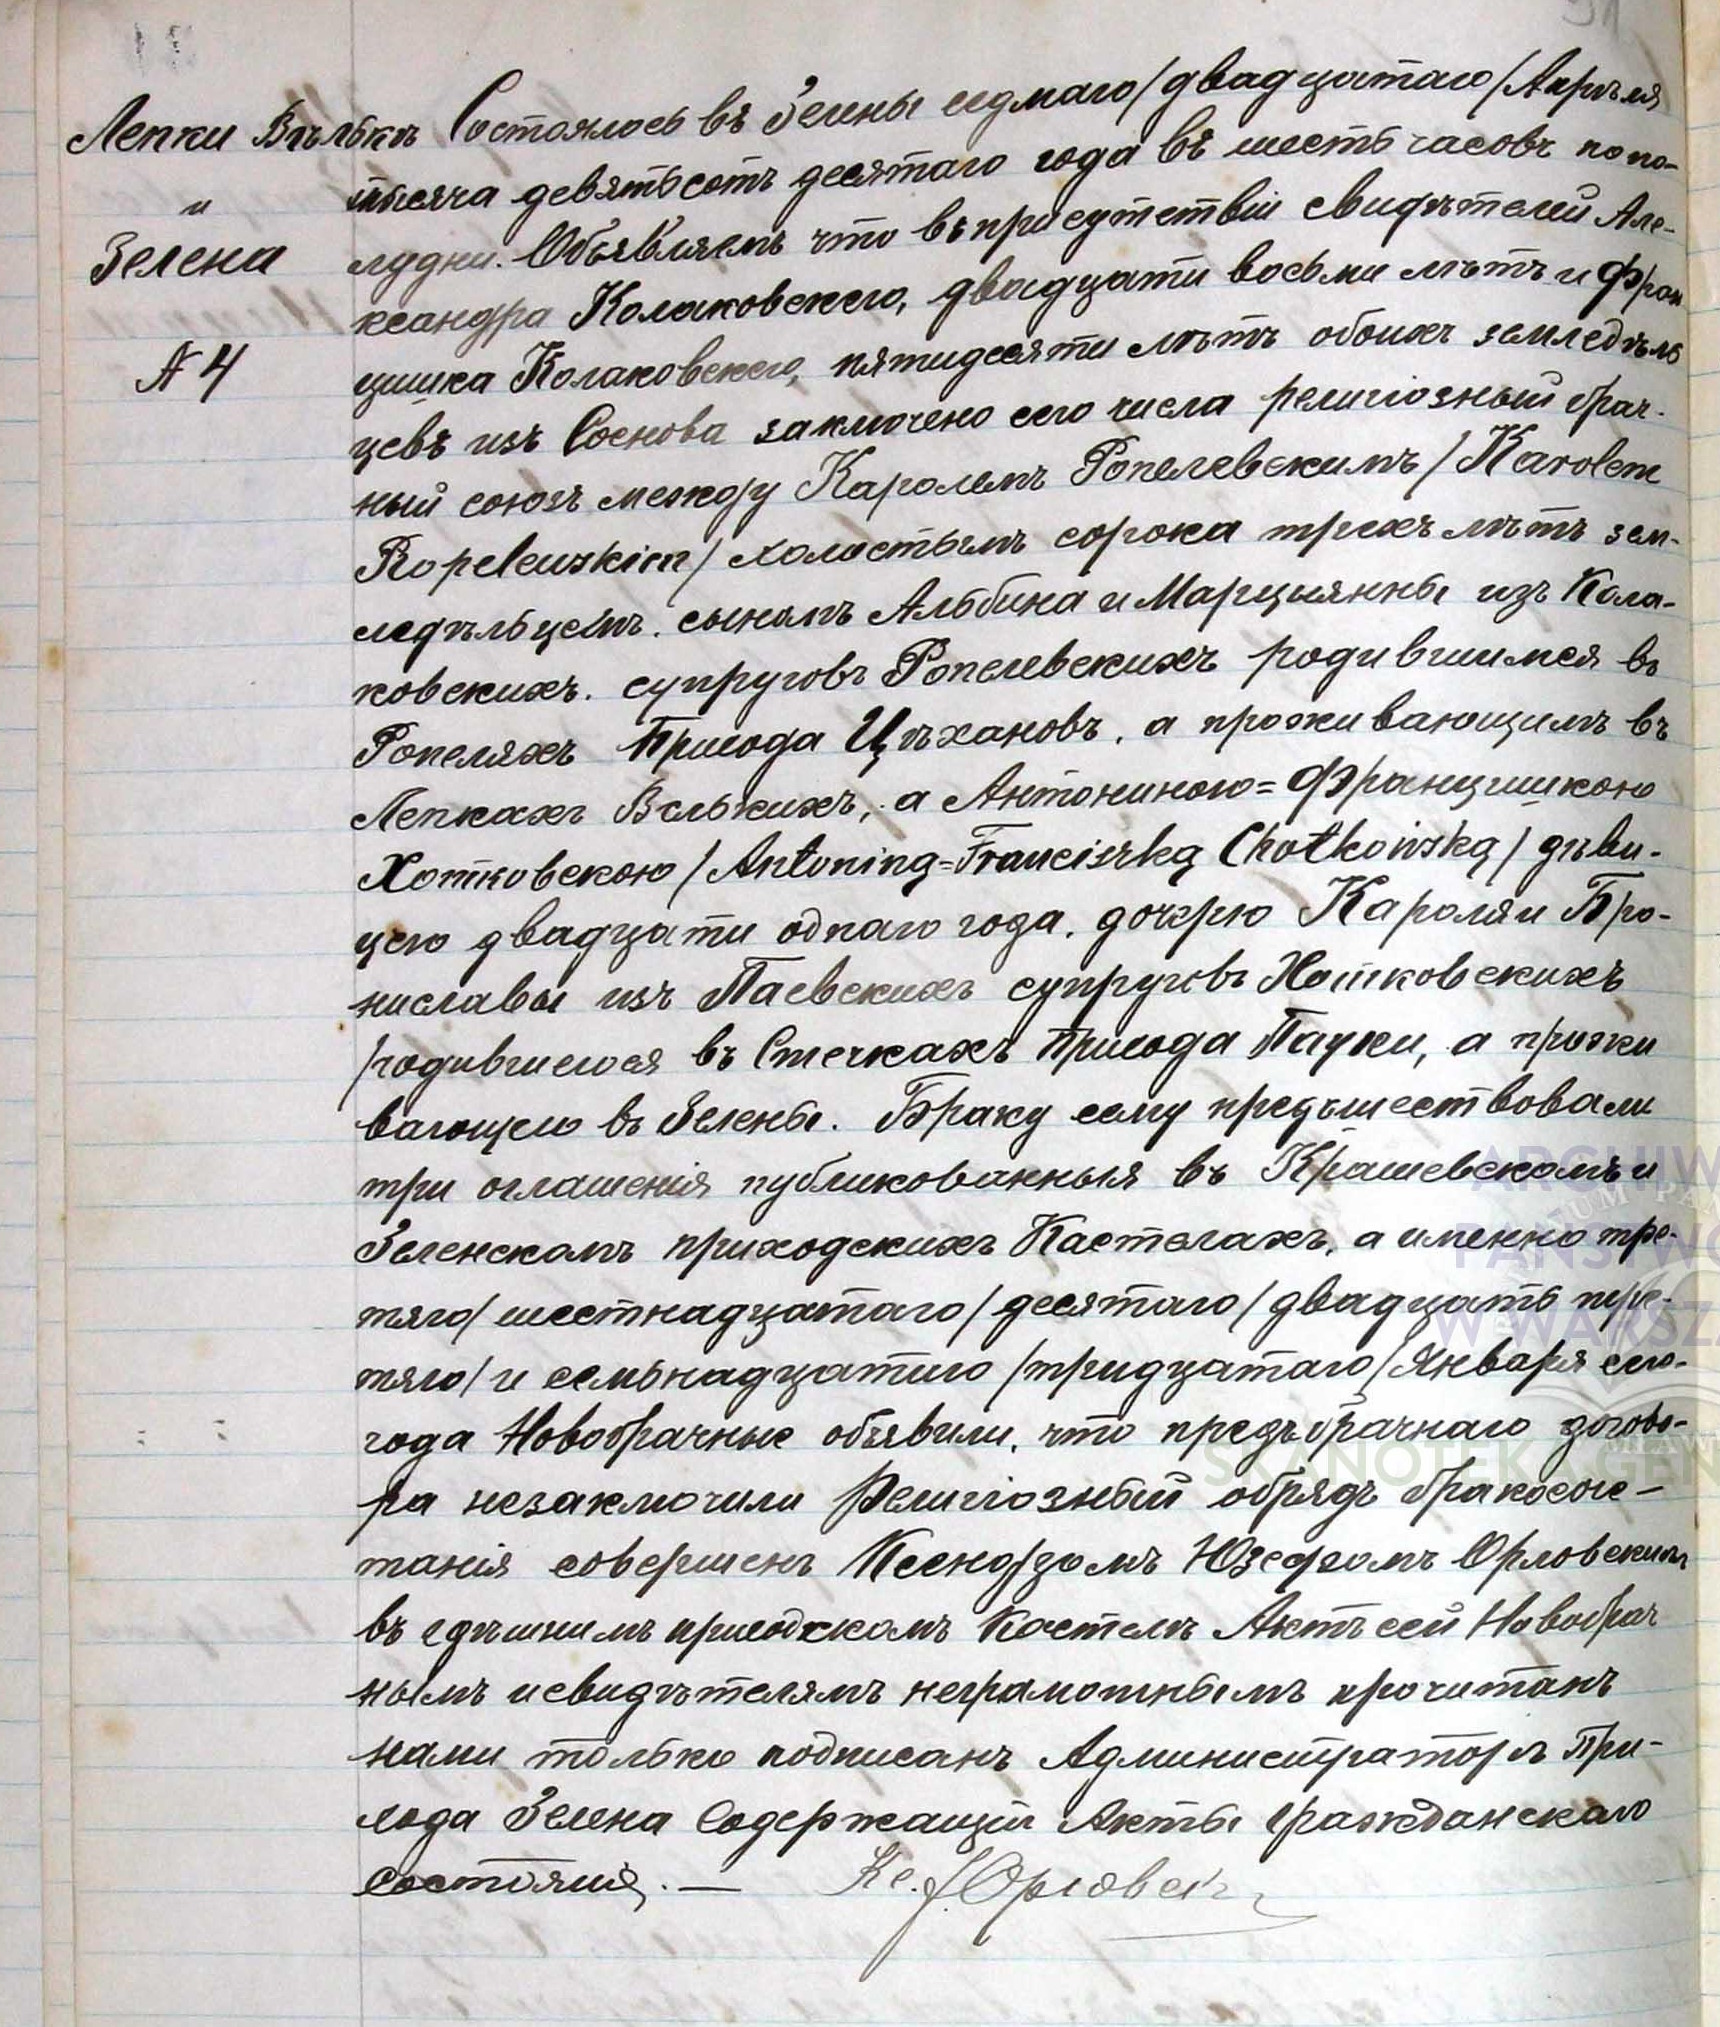 Лепки Вѣльки
и
Зелена
№ 4
Состоялось въ Зелены седмаго / двадцатаго / Апрѣля
тысяча девятьсотъ десятаго года въ шесть часовъ попо-
лудни. Объявляемъ что въ присутствіи свидѣтелей Але-
ксандра Колаковскего, двадцати восьми лѣтъ и Фран
цишка Колаковскего, пятидесяти лѣтъ обоихъ земледѣль
цевъ изъ Соснова заключено сего числа религіозный брач-
ный союзъ между Каролемъ Ропелевскимъ / Karolem
Ropelewskim / холостымъ сорока трехъ лѣтъ зем-
ледѣльцемъ. сыномъ Альбина и Марцыянны изъ Кола-
ковскихъ. супруговъ Ропелевскихъ родившимся въ
Ропеляхъ Прихода Цѣхановъ, а проживающимъ въ
Лепкахъ Велькихъ, а Антониною=Францишкою
Хотковскою / Antoniną=Franciszką Chotkowską / дѣви-
цею двадцати однаго года. дочерю Кароля и Бро-
ниславы изъ Паевскихъ супруговъ Хотковскихъ
родившеюся въ Стечкахъ Прихода Пауки, а прожи
вающею въ Зелены. Браку сему предшествовали
три оглашенія публикованныя въ Крашевскомъ и
Зеленскомъ приходскихъ Костелахъ, а именно тре-
тяго / шестнадцатаго / десятаго / двадцать тре-
тяго / и семьнадцатаго / тридцатаго / Января сего-
года Новобрачные объявили, что предъбрачнаго догово-
ра незаключили Религіозный обрядъ бракосоче-
танія совершенъ Ксендзомъ Юзефомъ Орловскимъ
въ здѣшнимъ приходскомъ Костелѣ Актъ сей Новобрач
нымъ и свидѣтелямъ неграмотнымъ прочитанъ
нами только подписанъ Администраторъ При-
хода Зелена Содержащій Акты Гражданскаго
Состоянія. — Кс. J. Орловскі
ARCHIW
PAŃSTWO
W WARSZA
SKANOTEKA GEN